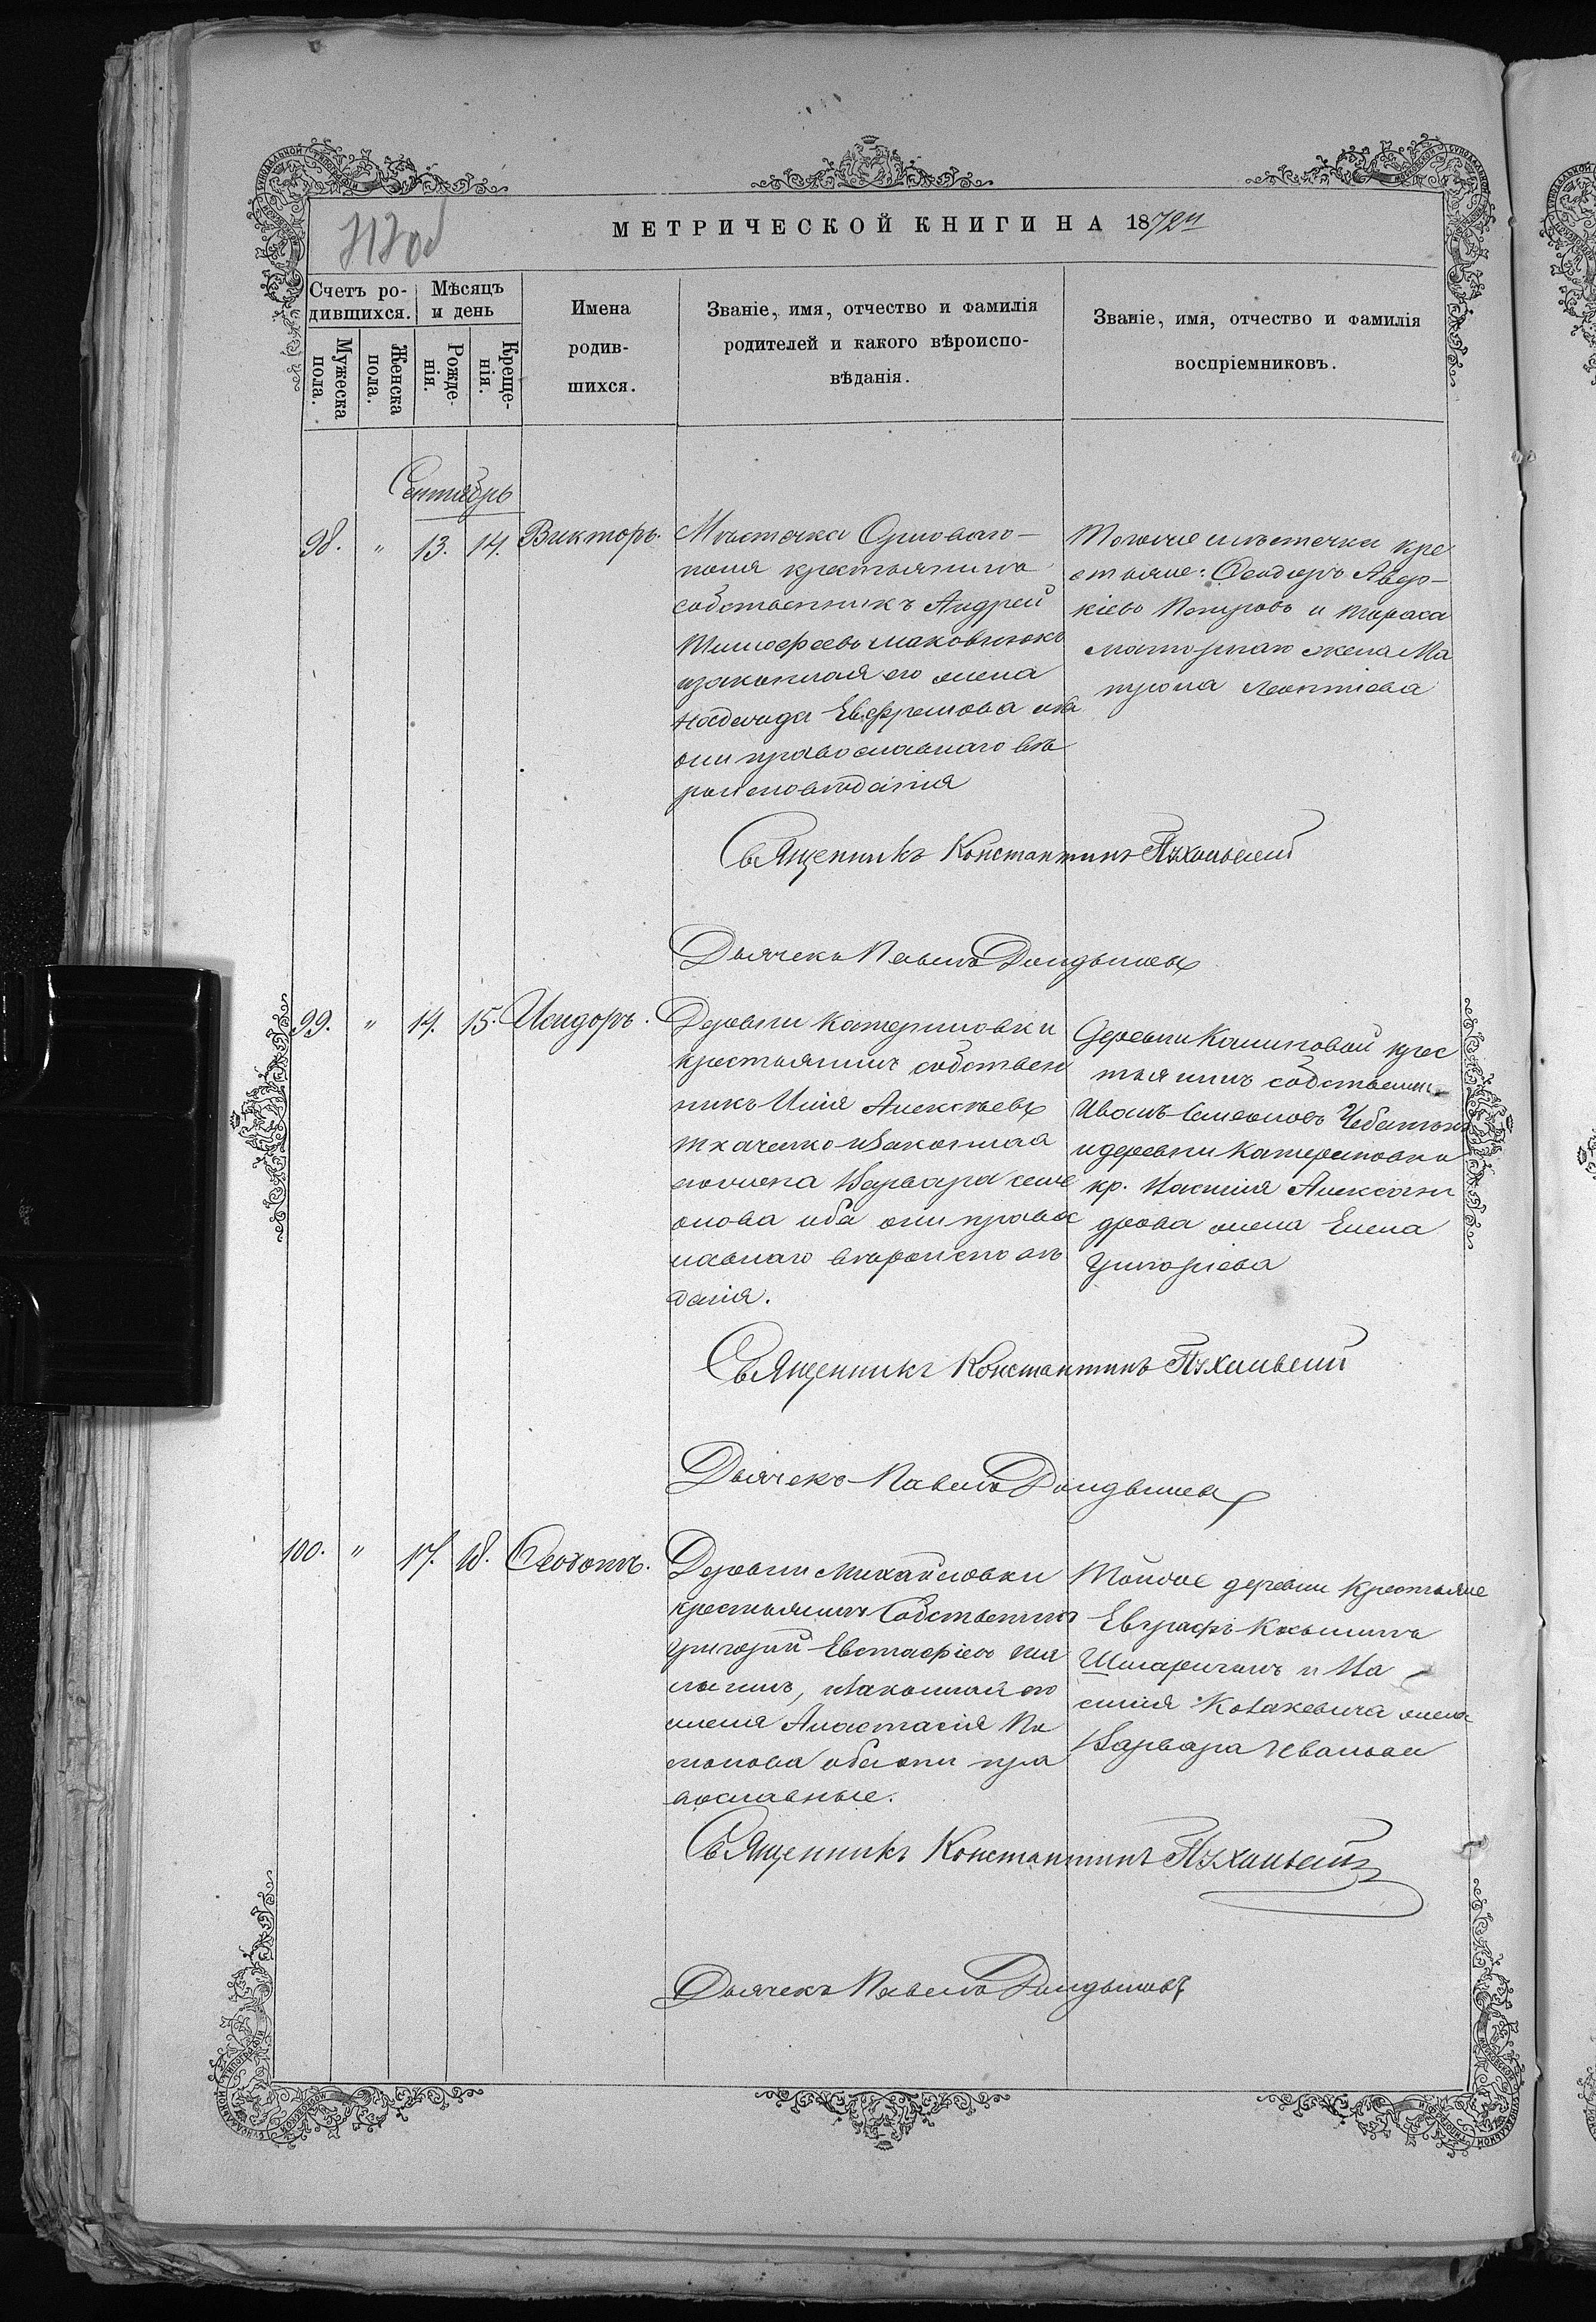 МЕТРИЧЕСКОЙ КНИГИ НА 1872й
Счетъ ро-
дившихся.
Мужеска
пола.
Женска
пола.
Мѣсяцъ
и день
Рожде-
нія.
Креще-
нія.
Имена
родив-
шихся.
Званіе, имя, отчество и фамилія
родителей и какого вѣроиспо-
вѣданія.
Званіе, имя, отчество и фамилія
воспріемниковъ.
Сентябрь
98. " 13. 14. Викторъ.
Мѣстечка
крестьянинъ
собственникъ Андрей
Тимофеевъ Маковнюкъ
изаконная его жена
Надежда Ефремова оба
они православнаго вѣ
роисповѣданія
Тогоже мѣстечка кре
стьяне: Феодоръ Авер-
кіевъ Петровъ и Тараса
жена Ма
трона Леонтіева
Священникъ Константинъ
Дьячекъ Павелъ
99. " 14. 15. Исидоръ.
Деревни Катериновки
крестьянинъ собствен
никъ Илія Алексѣевъ
Ткаченко изаконная
его жена Варвара Симе
онова оба они правос
лавнаго вѣроисповѣ
данія.
Деревни Калиновой крес
тьянинъ собственник
Иванъ Симеоновъ
идеревни Катериновки
кр. Василія Алексан
дрова жена Елена
Григоріева
Священникъ Константинъ
Дьячекъ Павелъ
100. " 17. 18. Феодотъ.
Деревни Михайловки
крестьянинъ Собственникъ
Григорій Евстафіевъ
изаконная его
жена Анастасія
оба они пра
вославные.
Тойже деревни Крестьяне
Евграфъ Косьминъ
и Ва
силія жена
Варвара Иванова
Священникъ Константинъ
Дьячекъ Павелъ